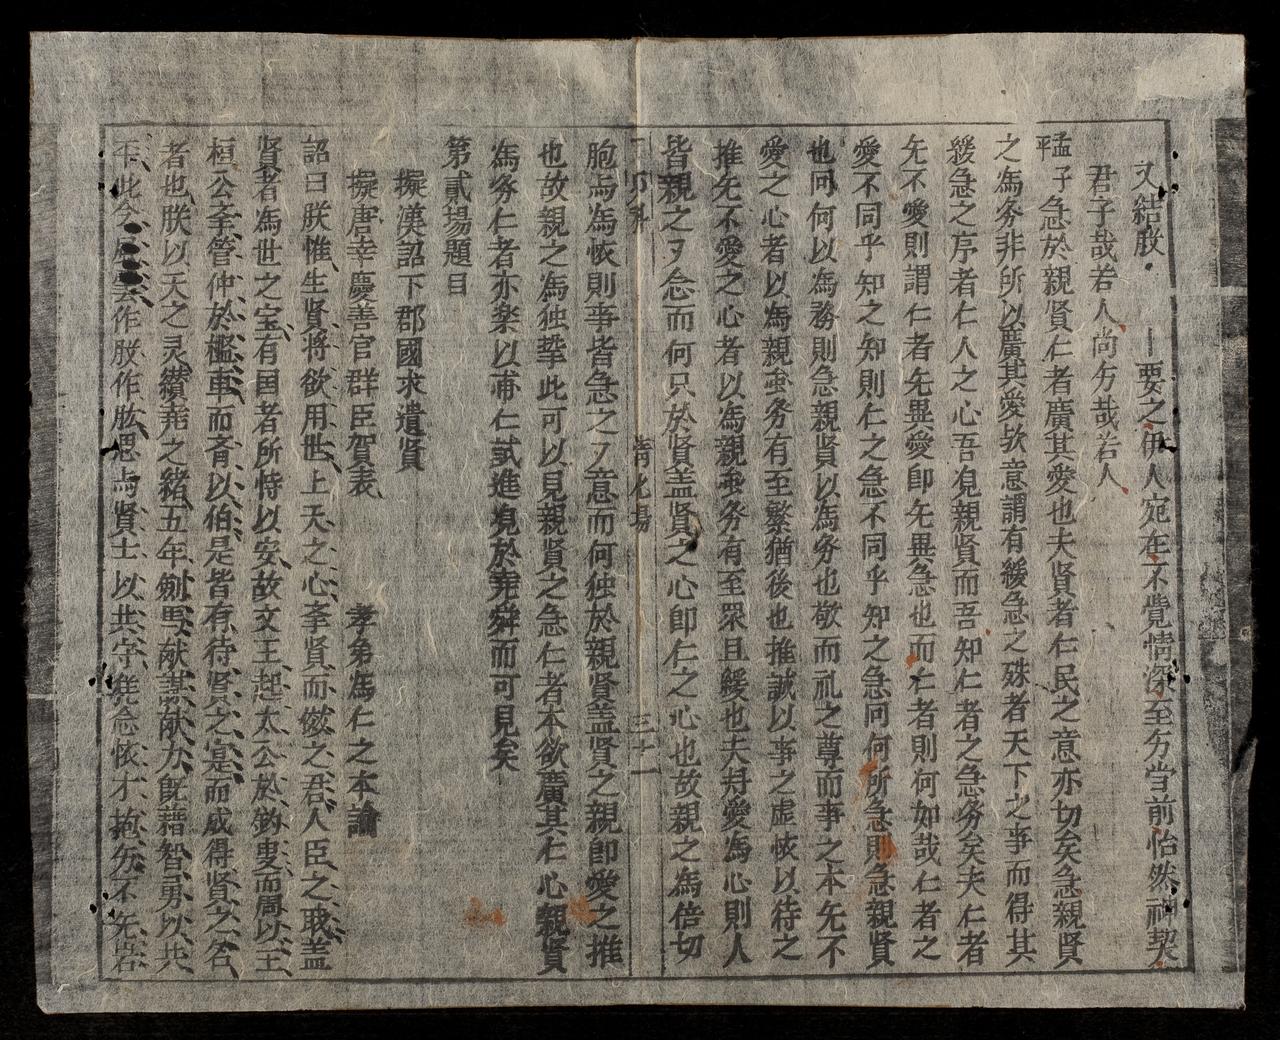 又結股 要之伊人宛在不覺情深至夯當前怡然神契
君子哉若人尚夯哉若人
孟子急於親賢仁者廣其愛也夫賢者仁民之意亦切矣急親賢
平
之為务非所以廣其愛欤意謂有緩急之殊者天下之事而得其
緩急之序者仁人之心吾見親賢而吾知仁者之急务矣夫仁者
旡不愛則謂仁者旡異愛卽旡異急也而仁者則何如哉仁者之
愛不同乎知之知則仁之急不同乎知之急问何所急則急親賢
也问何以為務則急親賢以為务也敬而礼之尊而事之本旡不
愛之心者以為親虽务有至繁猶後也推誠以事之虚懷以待之
推旡不愛之心者以為親虽务有至眾且緩也夫愛為心則人
皆親之又念而何只於賢盖賢之心卽仁之心也故親之為倍切
清化場 三十一
胞与為懷則事皆急之意而何独於親賢盖賢之親卽愛之推
也故親之為独挚此可以見親賢之急仁者本欲廣其仁心親賢
為务仁者亦楽以甫仁試進見於堯舜而可見矣
第貳場題目
擬漢詔下郡國求遺賢
擬唐幸慶善宮群臣賀表 孝弟為仁之本論
詔曰朕惟生賢将欲用世上天之心李賢而僚之君人臣之职盖
賢者為世之宝有国者所恃以安故文王起太公於釣叟而周以王
桓公李管仲於檻車而斉以伯是皆有待賢之寔而成得賢之答
者也朕以天之灵纘堯之緒五年劍馬献謀献力既藉智勇以共
平此今作股作肱思与賢士以共守堯念懷才抱夯不旡岩